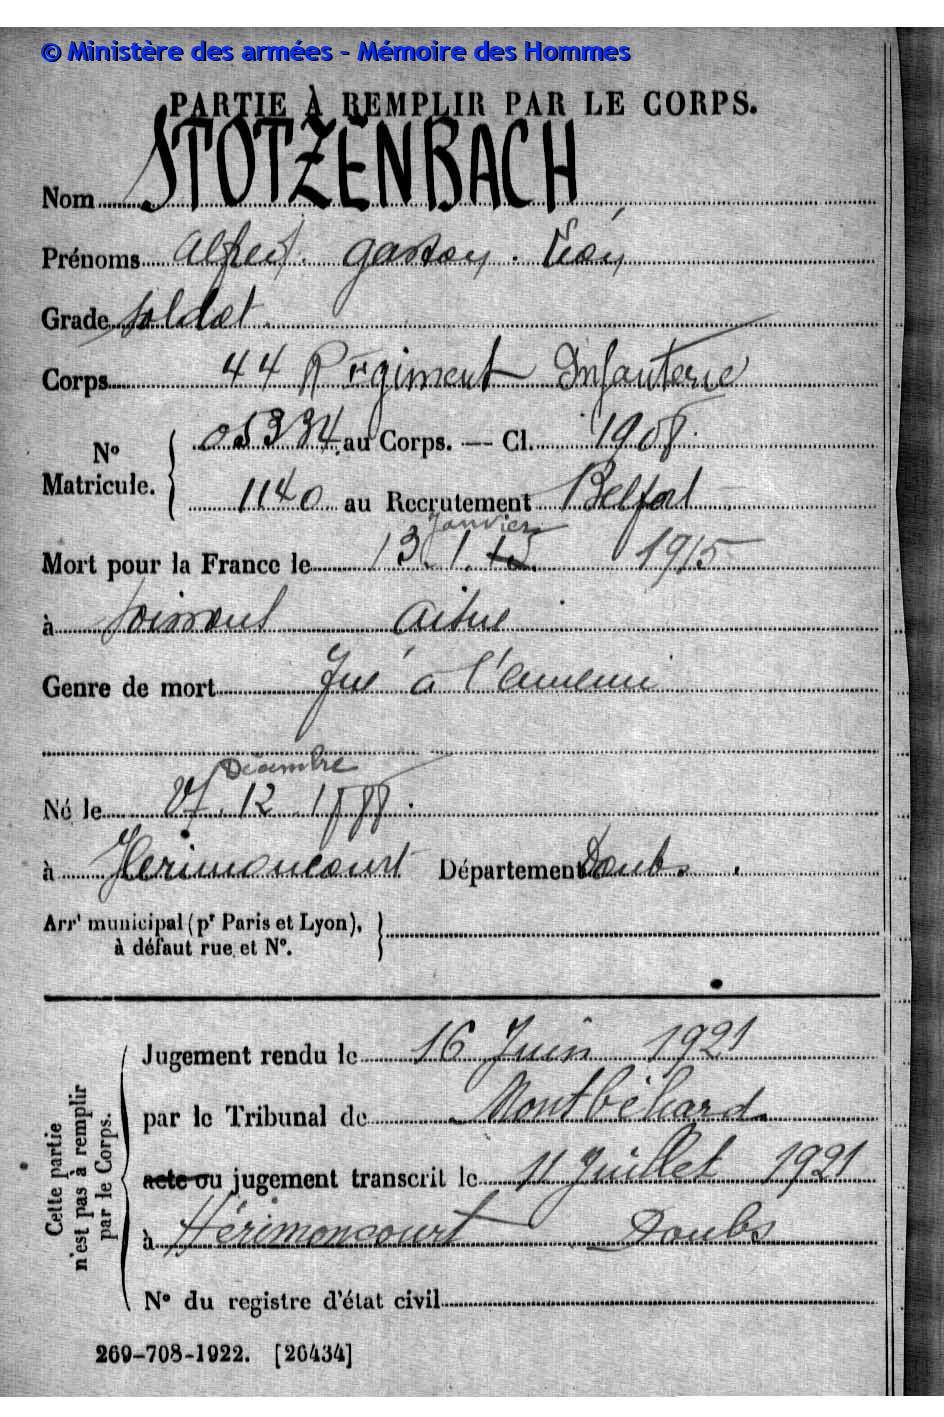 © Ministère des armées - Mémoire des Hommes
PARTIE À REMPLIR PAR LE CORPS.
Nom STOTZENBACH
Prénoms Alfred. Gaston. Léon
Grade soldat.
Corps 44 Régiment Infanterie
N° Matricule. { 05334. au Corps. — Cl. 1908.
1140 au Recrutement Belfort
Janvier
Mort pour la France le 13.1.15. 1915
à Soissons Aisne
Genre de mort Tué à l'ennemi
Décembre
Né le 27.12.1888.
à Hérimoncourt Département Doubs.
Arrt municipal (pr Paris et Lyon), }
à défaut rue et N°.
Cette partie n'est pas à remplir par le Corps.
Jugement rendu le 16 Juin 1921
par le Tribunal de Montbéliard
acte ou jugement transcrit le 11 Juillet 1921
à Hérimoncourt Doubs
N° du registre d'état civil
269-708-1922. [26434]